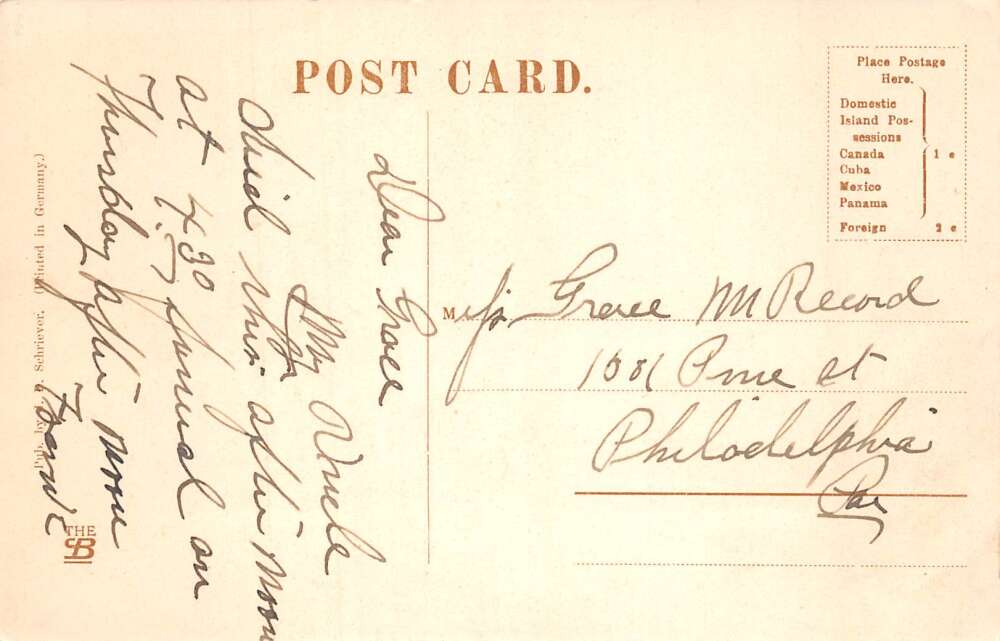 POST CARD.
Place Postage
Here.
Domestic
Island Pos-
sessions
Canada
Cuba
Mexico
Panama
1 c
Foreign 2 c
Dear Grace
My Uncle
died this after noon
at 4 30 funeral on
Thursday after noon
Miss Grace McRecord
1031 Pine st
Philadelphia
Pa
Pub. by P. Schriever. (Printed in Germany.)
THE